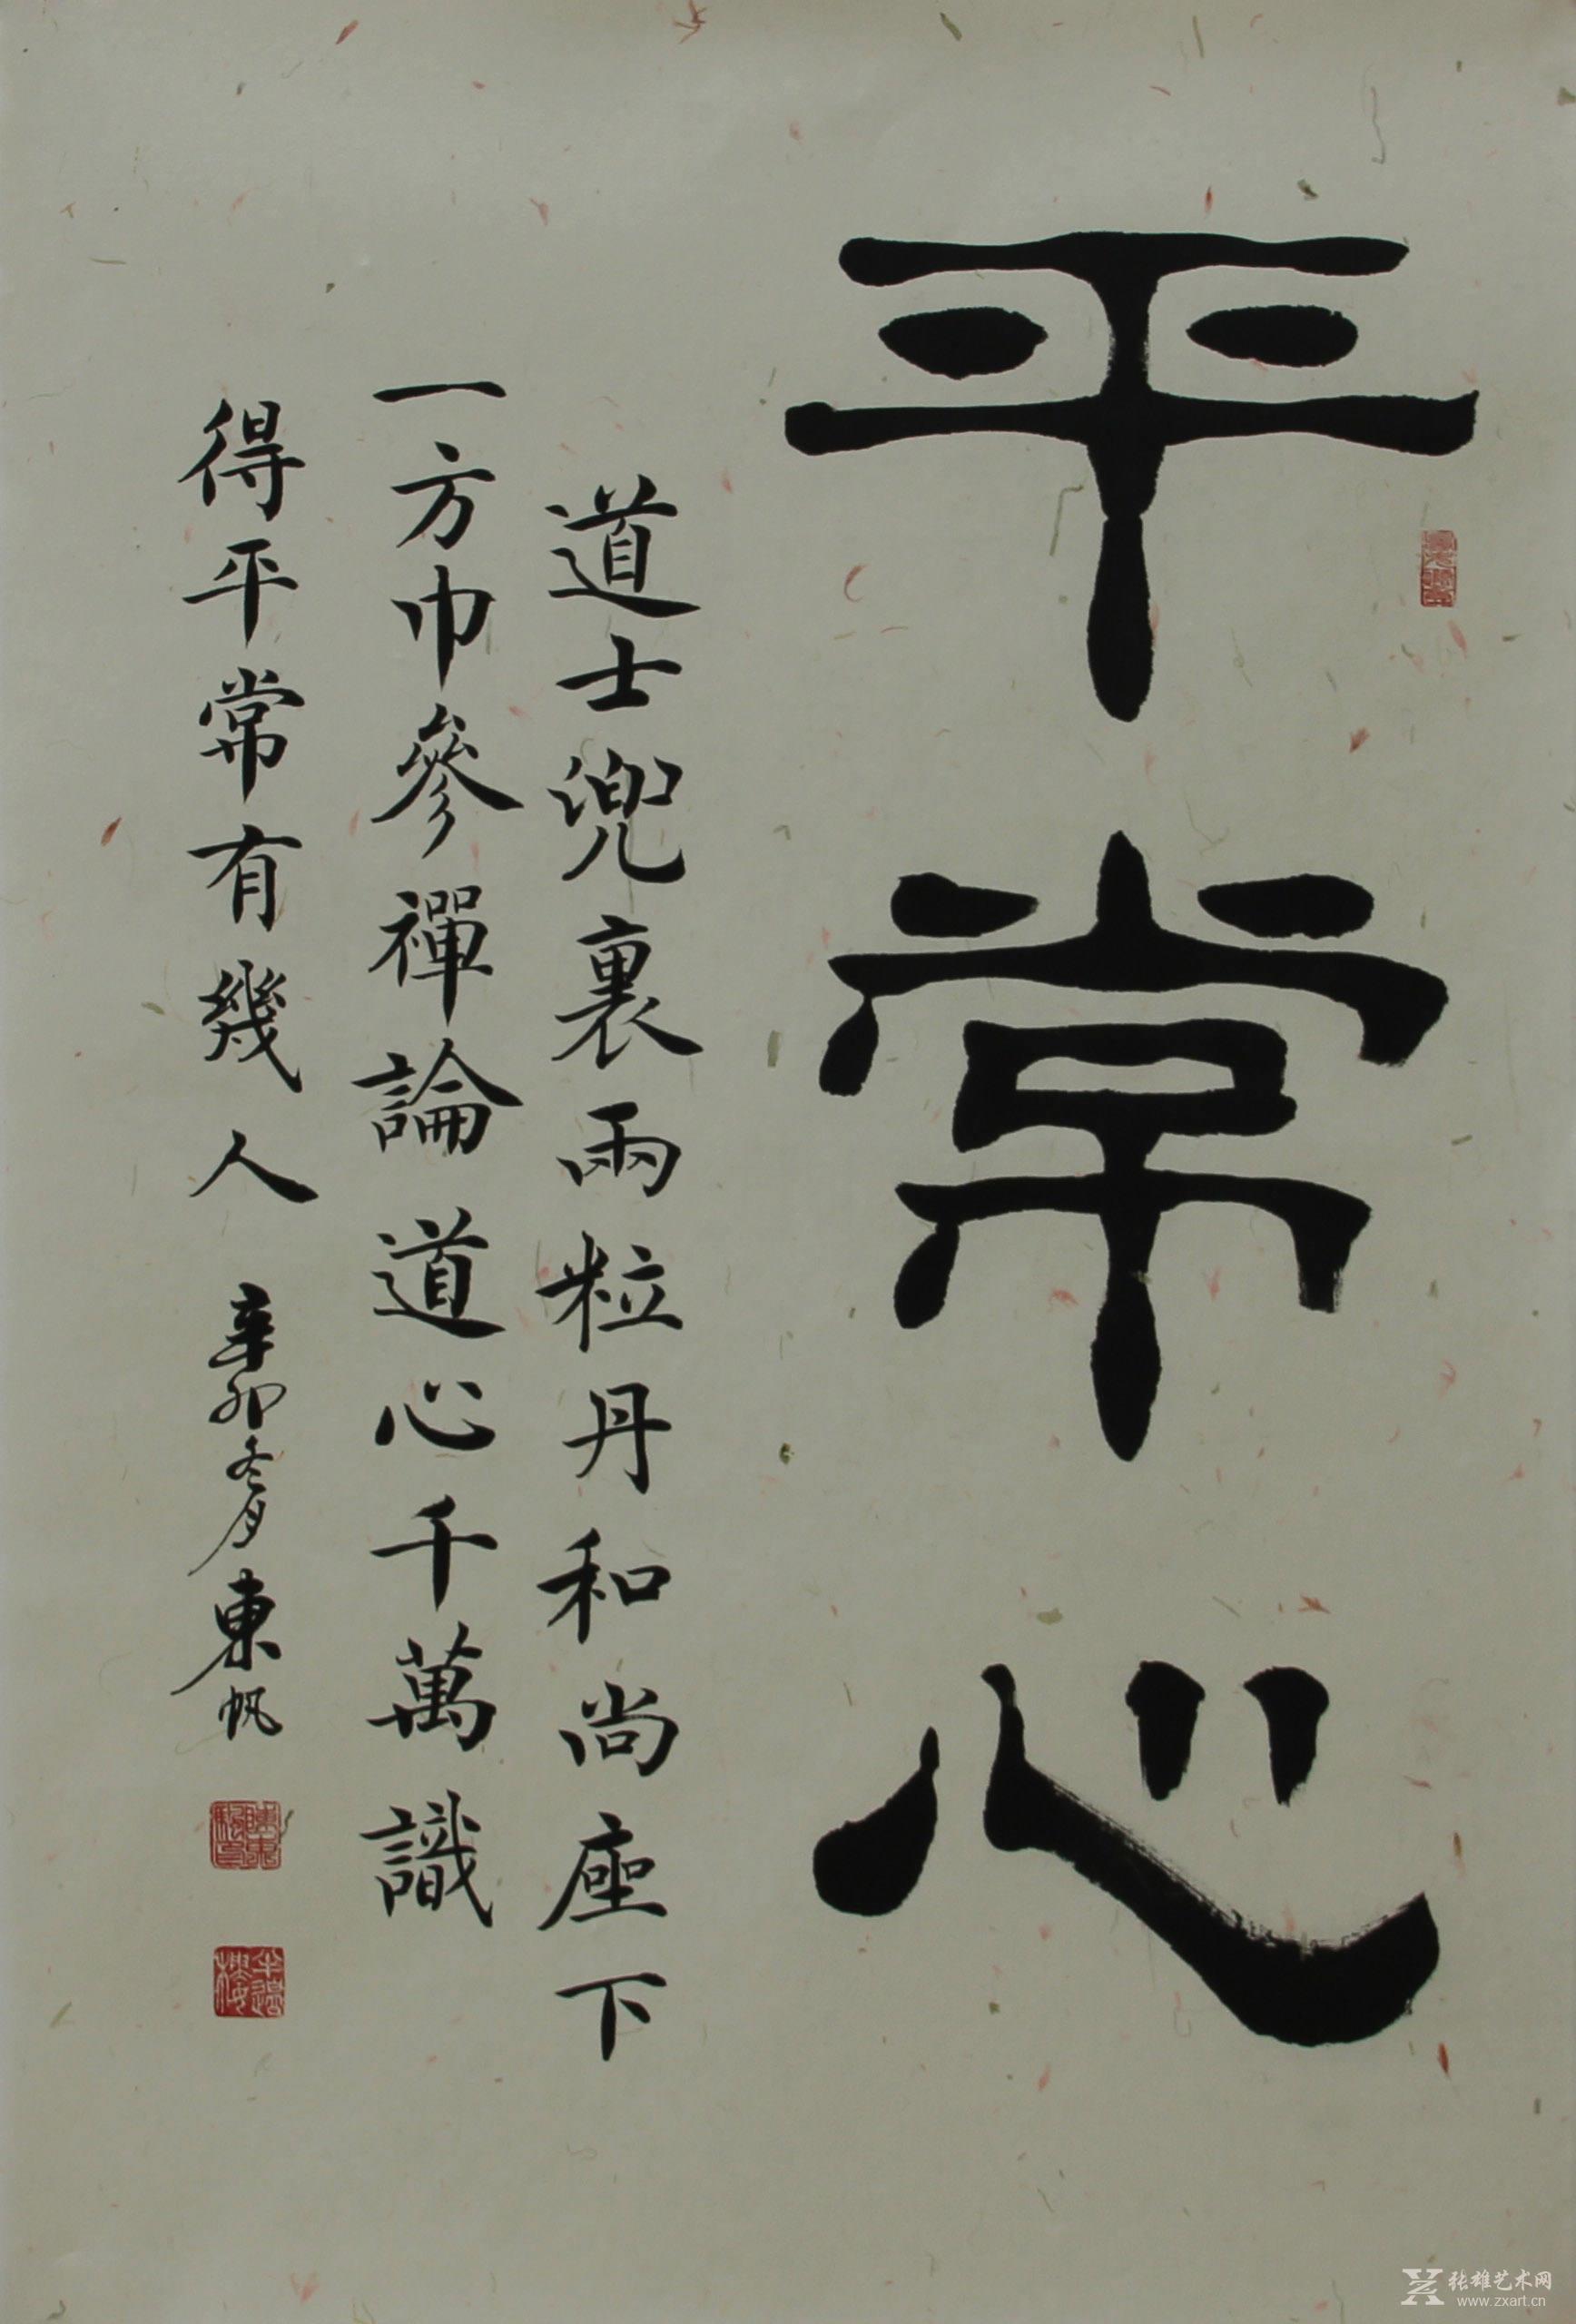 平常心
道士兜裏兩粒丹和尚座下
一方巾參禪論道心千萬識
得平常有幾人 辛卯冬月東帆
半邊樓
张雄艺术网
www.zxart.cn